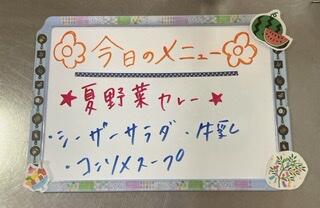 今日のメニュー
★夏野菜カレー★
・シーザーサラダ ・牛乳
・コンソメスープ